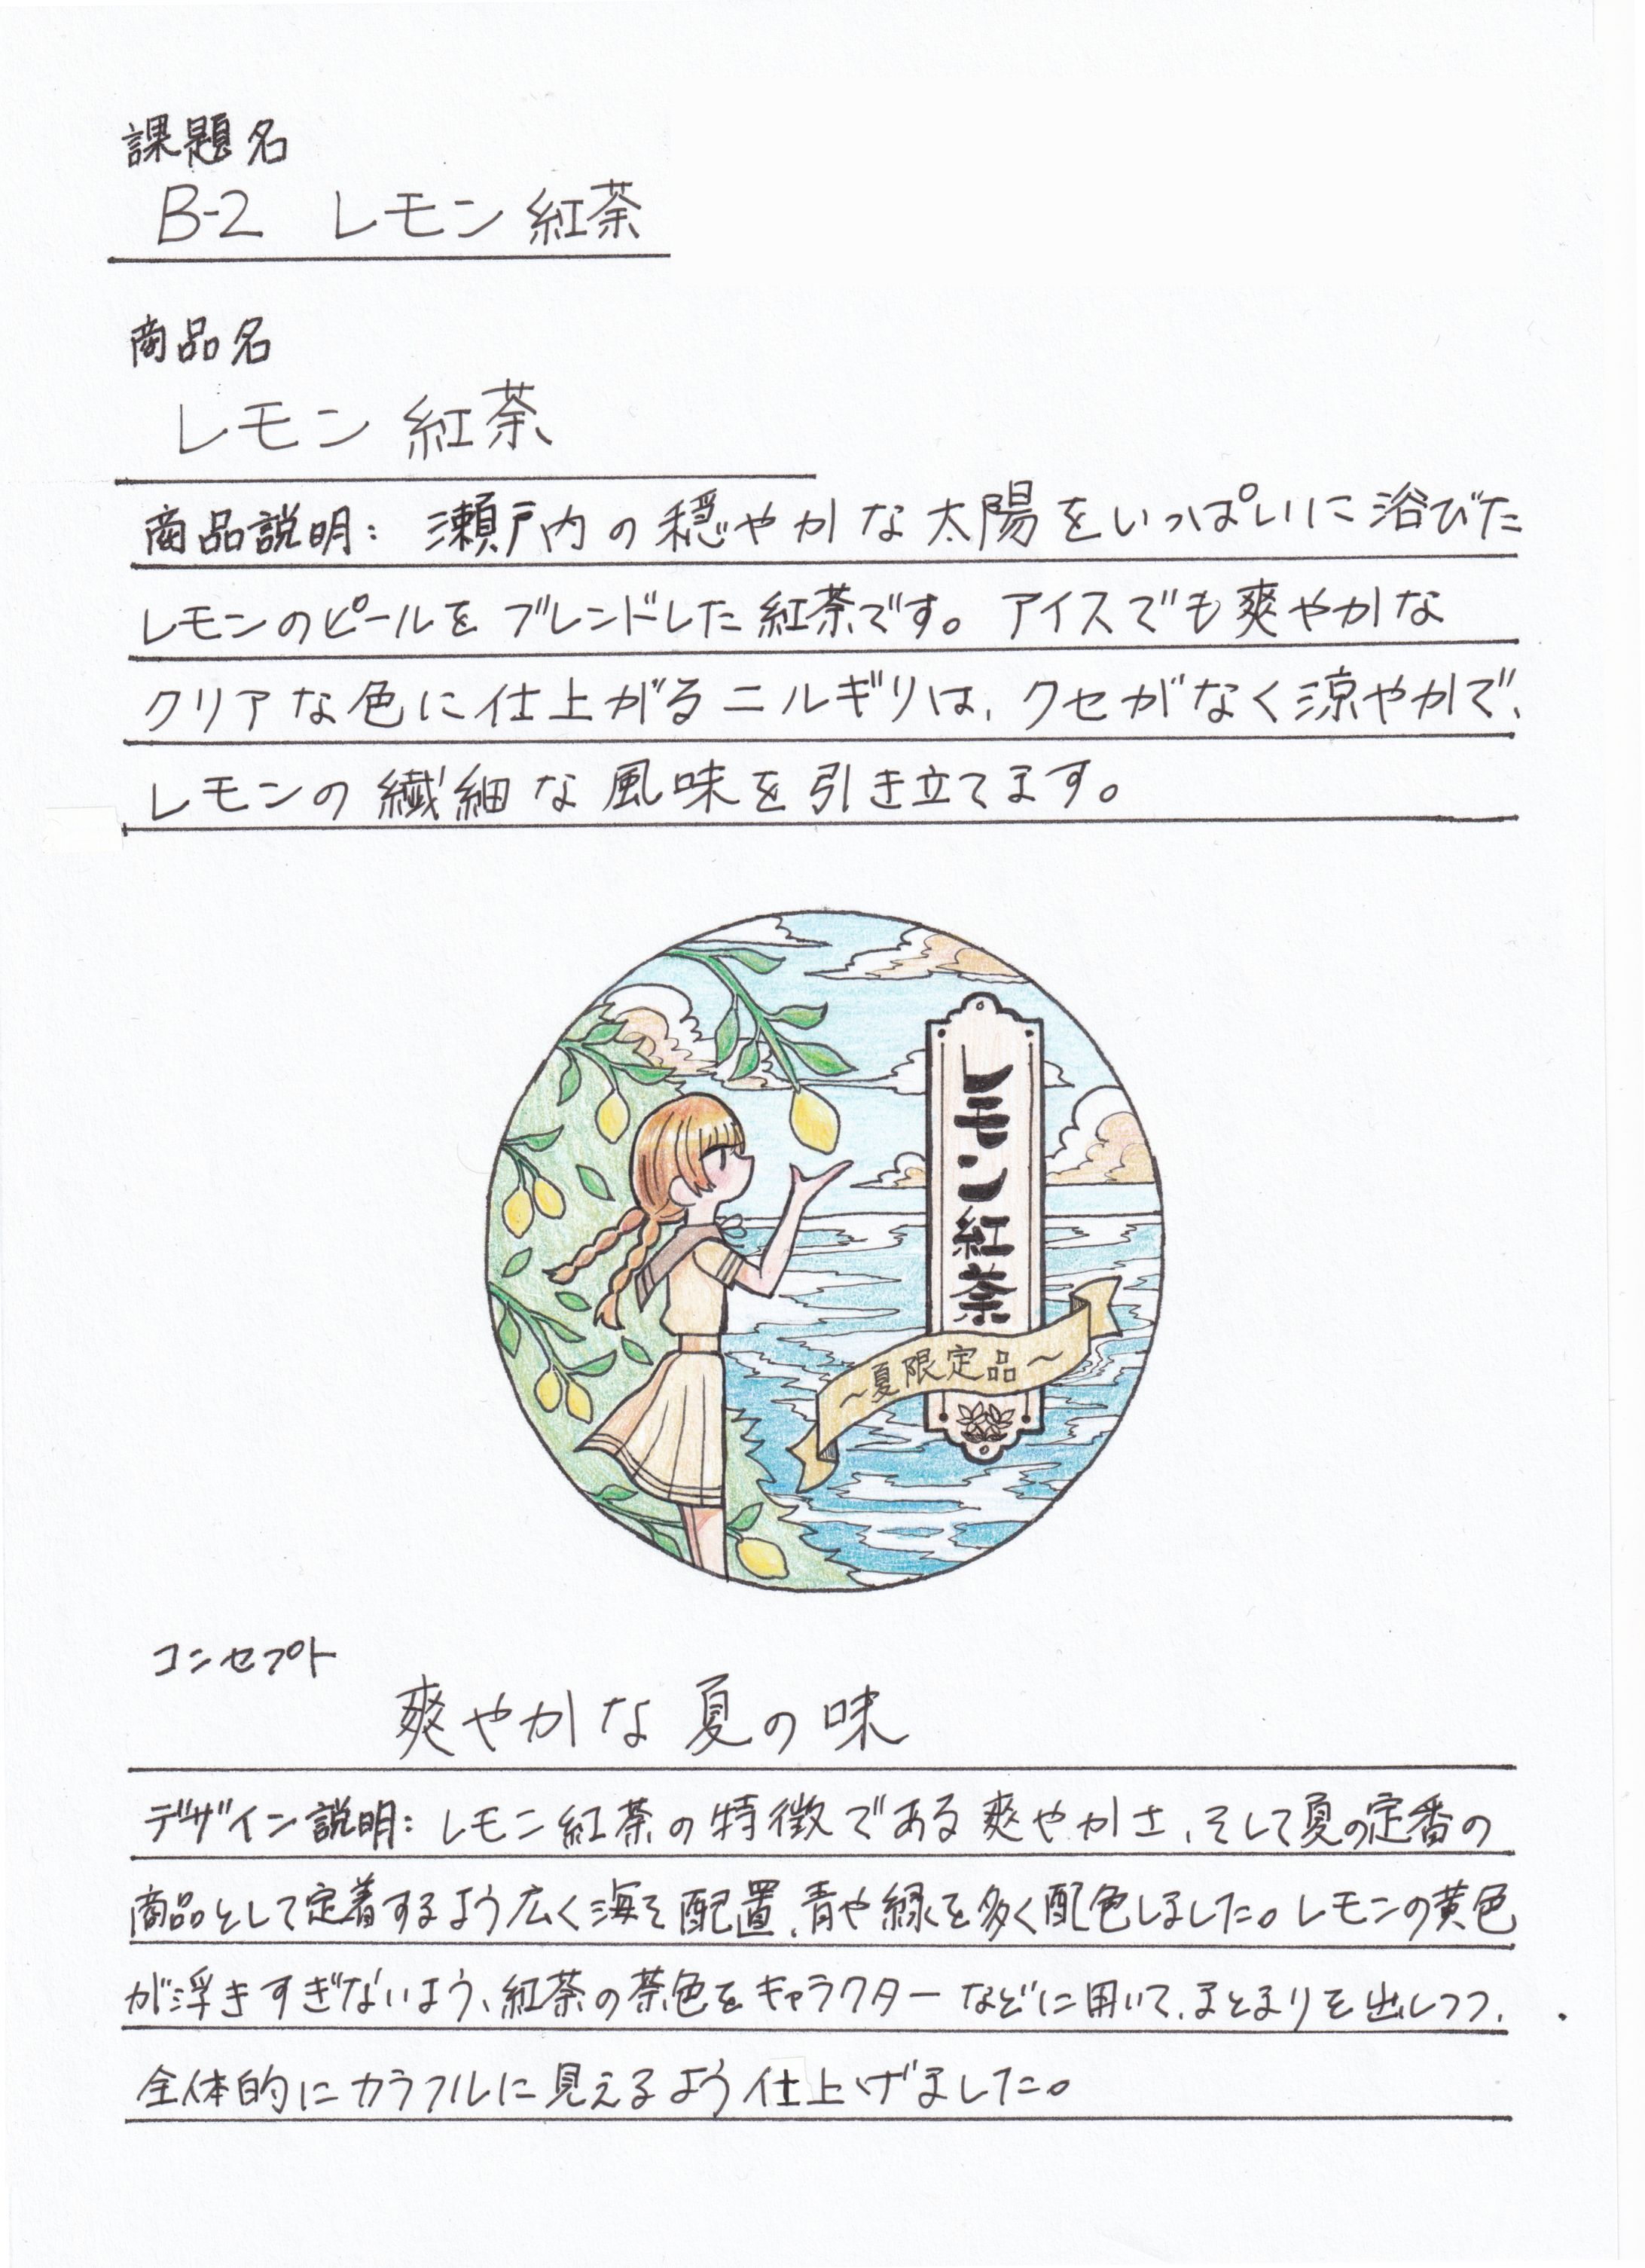 課題名
B-2 レモン紅茶
商品名
レモン紅茶
商品説明: 瀬戸内の穏やかな太陽をいっぱいに浴びた
レモンのピールをブレンドした紅茶です。アイスでも爽やかな
クリアな色に仕上がるニルギリは、クセがなく涼やかで、
レモンの繊細な風味を引き立てます。
レモン紅茶
~夏限定品~
コンセプト
爽やかな夏の味
デザイン説明: レモン紅茶の特徴である爽やかさ、そして夏の定番の
商品として定着するよう広く海を配置、青や緑を多く配色しました。レモンの黄色
が浮きすぎないよう、紅茶の茶色をキャラクターなどに用いて、まとまりを出しつつ、
全体的にカラフルに見えるよう仕上げました。